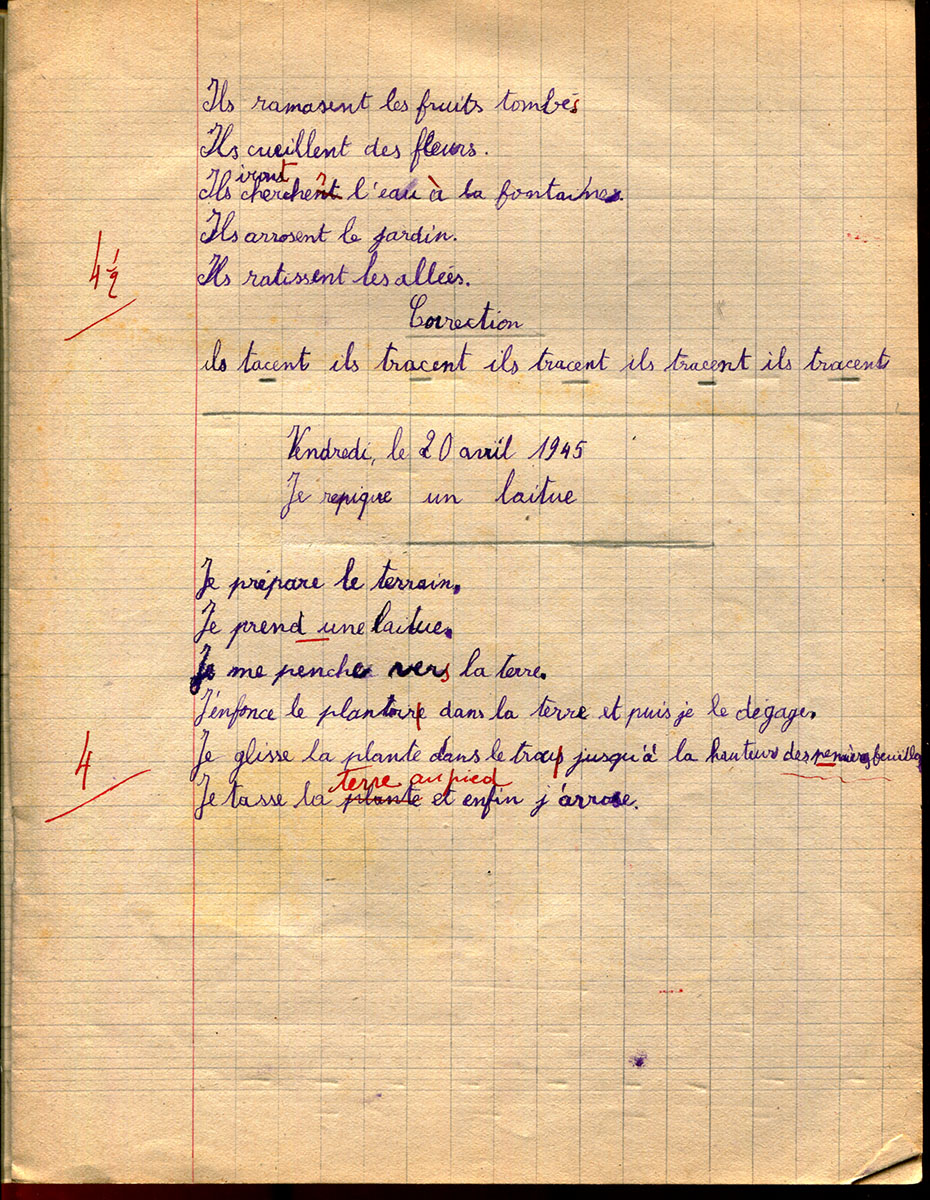 Ils ramasent les fruits tombés
Ils cueillent des fleurs.
iront
Ils cherchent l'eau à la fontaine.
Ils arrosent le jardin.
4 1/2
Ils ratissent les allées.
Correction
ils tacent ils tracent ils tracent ils tracent ils tracent
Vendredi, le 20 avril 1945
Je repique un laitue
Je prépare le terrain.
Je prend une laitue.
Je me penche vers la terre.
J'enfonce le plantoire dans la terre et puis je le dégage.
4
Je glisse la plante dans le troup jusqu'à la hauteur des pemières feuilles
terre au pied
Je tasse la plante et enfin j'arrose.